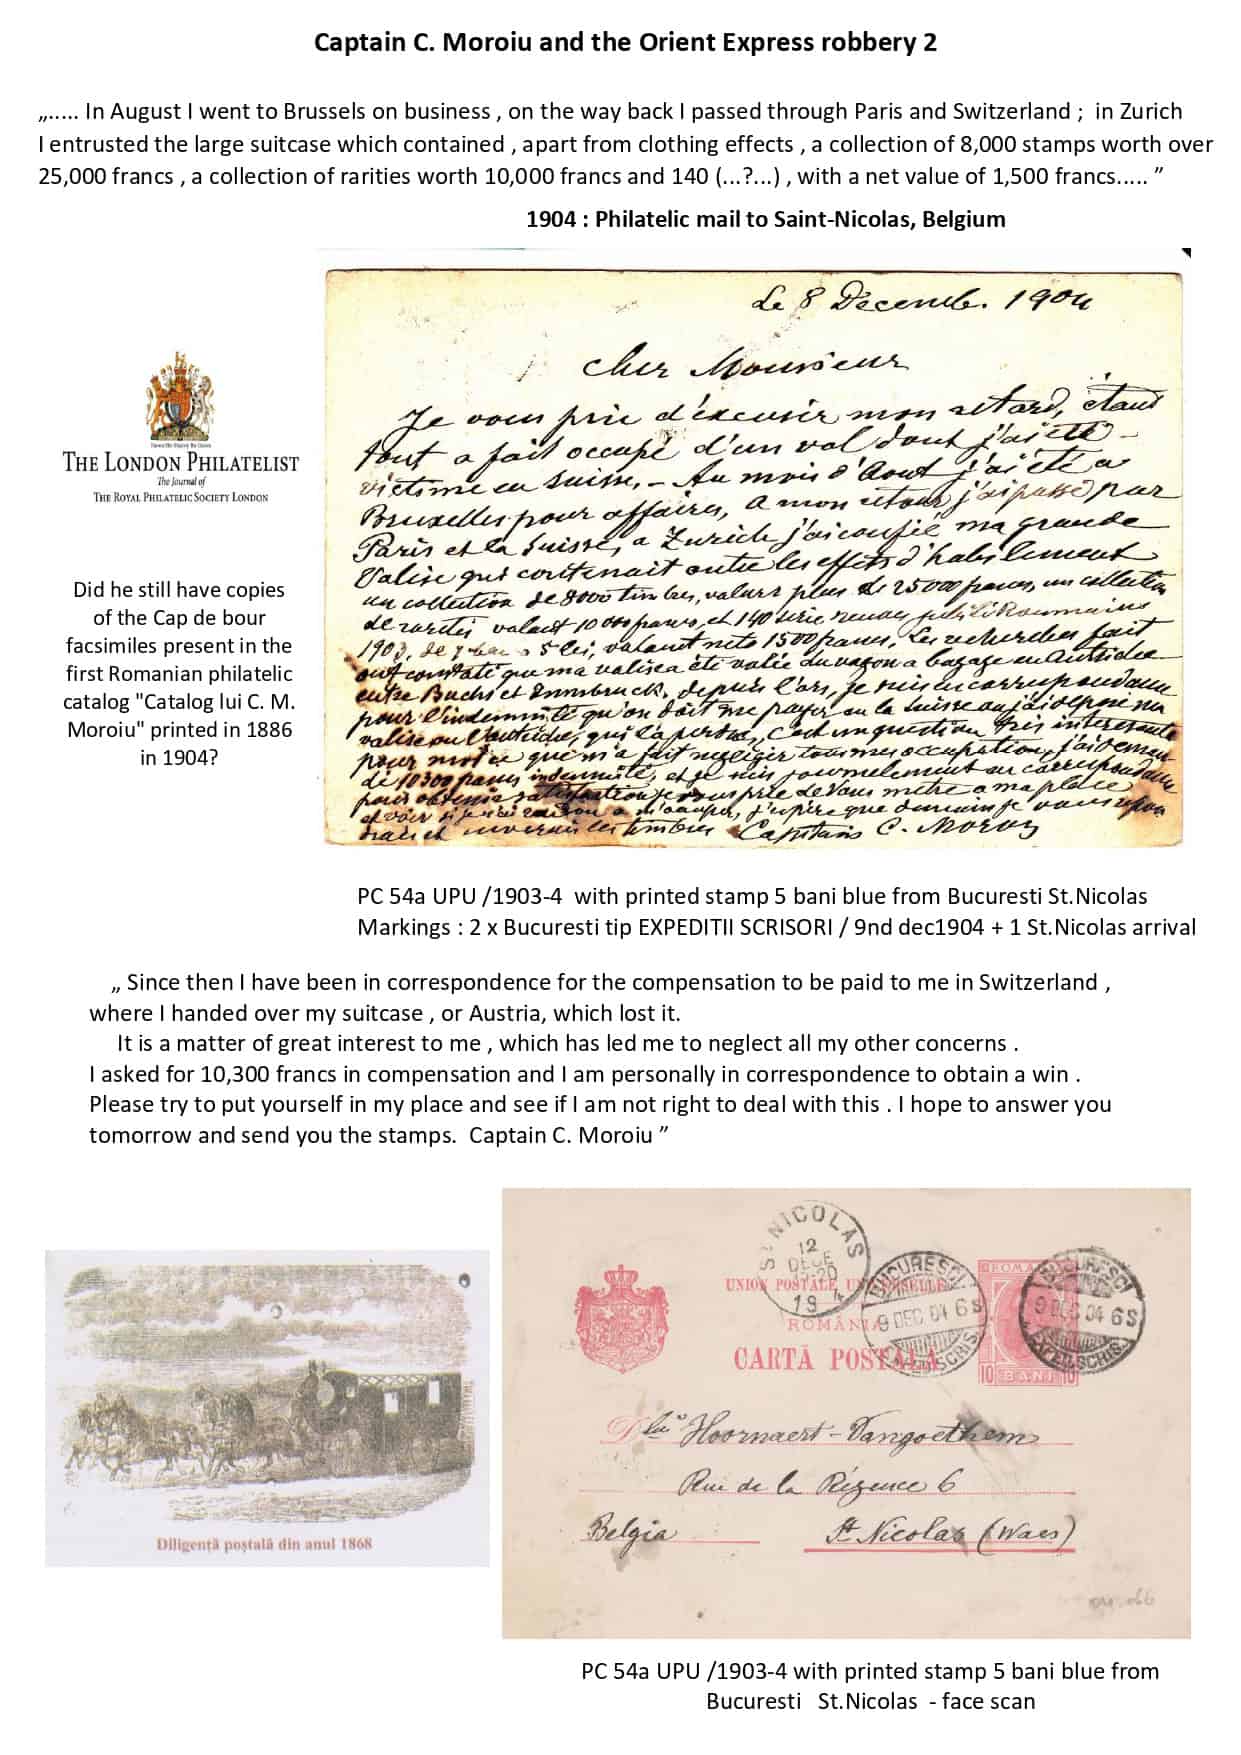 Captain C. Moroiu and the Orient Express robbery 2
„..... In August I went to Brussels on business , on the way back I passed through Paris and Switzerland ; in Zurich
I entrusted the large suitcase which contained , apart from clothing effects , a collection of 8,000 stamps worth over
25,000 francs , a collection of rarities worth 10,000 francs and 140 (...?...) , with a net value of 1,500 francs..... ”
1904 : Philatelic mail to Saint-Nicolas, Belgium
THE LONDON PHILATELIST
The Journal of
THE ROYAL PHILATELIC SOCIETY LONDON
Did he still have copies
of the Cap de bour
facsimiles present in the
first Romanian philatelic
catalog "Catalog lui C. M.
Moroiu" printed in 1886
in 1904?
Le 8 Decembe. 1904
Cher Monsieur
Je vous prie d'excusir mon retard, étant
tout a fait occupé d'un vol dont j'ai été
victime en Suisse. - Au mois d'Aout j'ai été a
Bruxelles pour affaires, a mon retour j'ai passé par
Paris et la Suisse, a Zurich j'ai confié ma grande
Valise qui contenait outre les effets d'habilement
un collection de 8000 timbres, valeur plus de 25000 francs, un collection
de raretés valant 10000 francs, et 140 serie
1903, de 5 lei, valant neto 1500 francs. Les recherches fait
ont constaté que ma valise a été volée du vagon a bagage en Autriche
entre Buchs et Innsbruck, depuis l'ors, je suis en correspondance
pour l'indemnité qu'on doit me payer ou la Suisse ou j'ai depose ma
valise ou l'Autriche, qui l'a perdue, c'est un question tris interesante
pour moi ce qui m'a fait negliger tous mes occupation, j'ai deman-
dé 10300 francs indemnité, et je suis journelement en correspondance
pour obtenir satisfaction je vous prie de vous metre a ma place
et voir si je n'ai raison a m'occuper, j'espére que demain je vous repon
drais et les timbres Capitain C. Moroiu
PC 54a UPU /1903-4 with printed stamp 5 bani blue from Bucuresti St.Nicolas
Markings : 2 x Bucuresti tip EXPEDITII SCRISORI / 9nd dec1904 + 1 St.Nicolas arrival
„ Since then I have been in correspondence for the compensation to be paid to me in Switzerland ,
where I handed over my suitcase , or Austria, which lost it.
It is a matter of great interest to me , which has led me to neglect all my other concerns .
I asked for 10,300 francs in compensation and I am personally in correspondence to obtain a win .
Please try to put yourself in my place and see if I am not right to deal with this . I hope to answer you
tomorrow and send you the stamps. Captain C. Moroiu ”
Diligență poștală din anul 1868
ST NICOLAS
12
DECE
19 4
UNION POSTALE UNIVERSELLE
ROMÂNIA
CARTĂ POSTALĂ
BUCURESCI
9 DEC 04 6 S
BUCURESCI
9 DEC 04 6 S
EXPED.SCRIS.
ROMANIA
10 BANI 10
Hoornaert - Vangoethem
Rue de la Régence 6
Belgia
St Nicolas (Waes)
PC 54a UPU /1903-4 with printed stamp 5 bani blue from
Bucuresti St.Nicolas - face scan